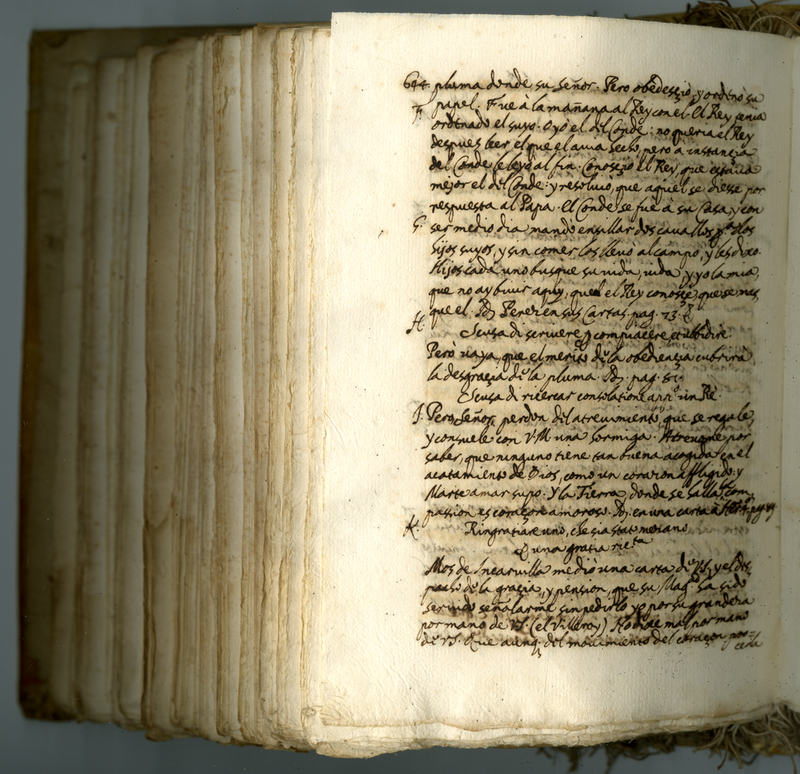 644. pluma donde su Señor. Pero obedesçió, y ordenò su
F. papel. Fue à la mañana al Rey con el. El Rey tenia
ordenado el suyo. Oyò el del Conde: no queria el Rey
despues leer el que el avia hecho, pero à instancia
del Conde se leyò al fin. Conosçiò el Rey, que estava
mejor el del Conde: y resolviò, que aquel se diesse por
respuesta al Papa. El Conde se fue à su Casa, y con
G. ser medio dia mandò ensillar dos cavallos pª dos
hijos suyos, y sin comer los llevò al campo, y les dixo.
Hijos cada uno busque su vida, y yo la mia,
que no ay bivir aquy, que el Rey conosçe, que se mas
que el. Perez en sus Cartas. pag. 73.
H. Scusa di scrivere p compiacere, et ubidire
Però vaya, que el merito de la obediençia cubrirà
la desgraçia de la pluma. pag.
Scusa di ricercar consolatione un Rè.
I. Pero Señor, perdon del atrevimiento, que se regale,
y consuele con V.M. una hormiga. Atrevome por
saber, que ninguno tiene tan buena acogida en el
acatamiento de Dios, como un corazon affligido: y
Marte amar supo. Y la Tierra, donde se halla com
passion es coraçon amoroso. en una carta à
K. Ringratiare uno, che sia stato mezano
d' una gratia
Mos de Incarvilla me diò una carta de VS. y el des
pacho de la graçia, y pension, que su Magᵈ ha sido
servido señalarme sin pedirlo yo por su grandeza
por mano de VS. (el Villeroy) No diae mal por mano
de VS. Que aunq. del movimiento del coraçon pro=
ceda